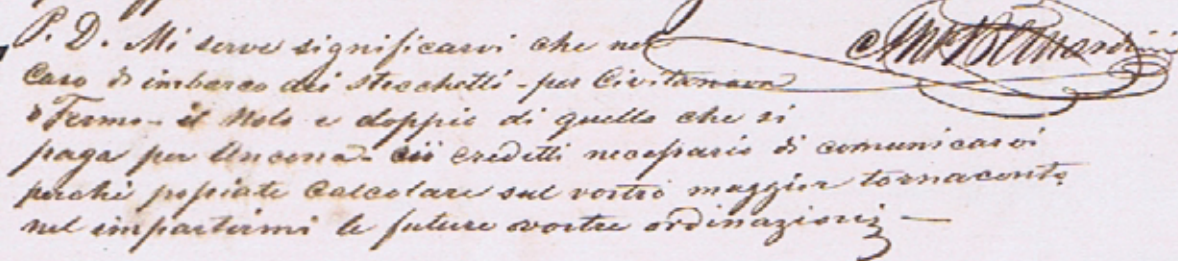 P. D. Mi serve significarvi che nel
Caso di imbarco dei stecchetti - per Civitanova
o Fermo - il Nolo e doppio di quello che si
paga per Ancona - ciò credetti necessario di comunicarvi
perchè possiate Calcolare sul vostro maggior tornaconto
nel impartirmi le future vostre ordinazioni —